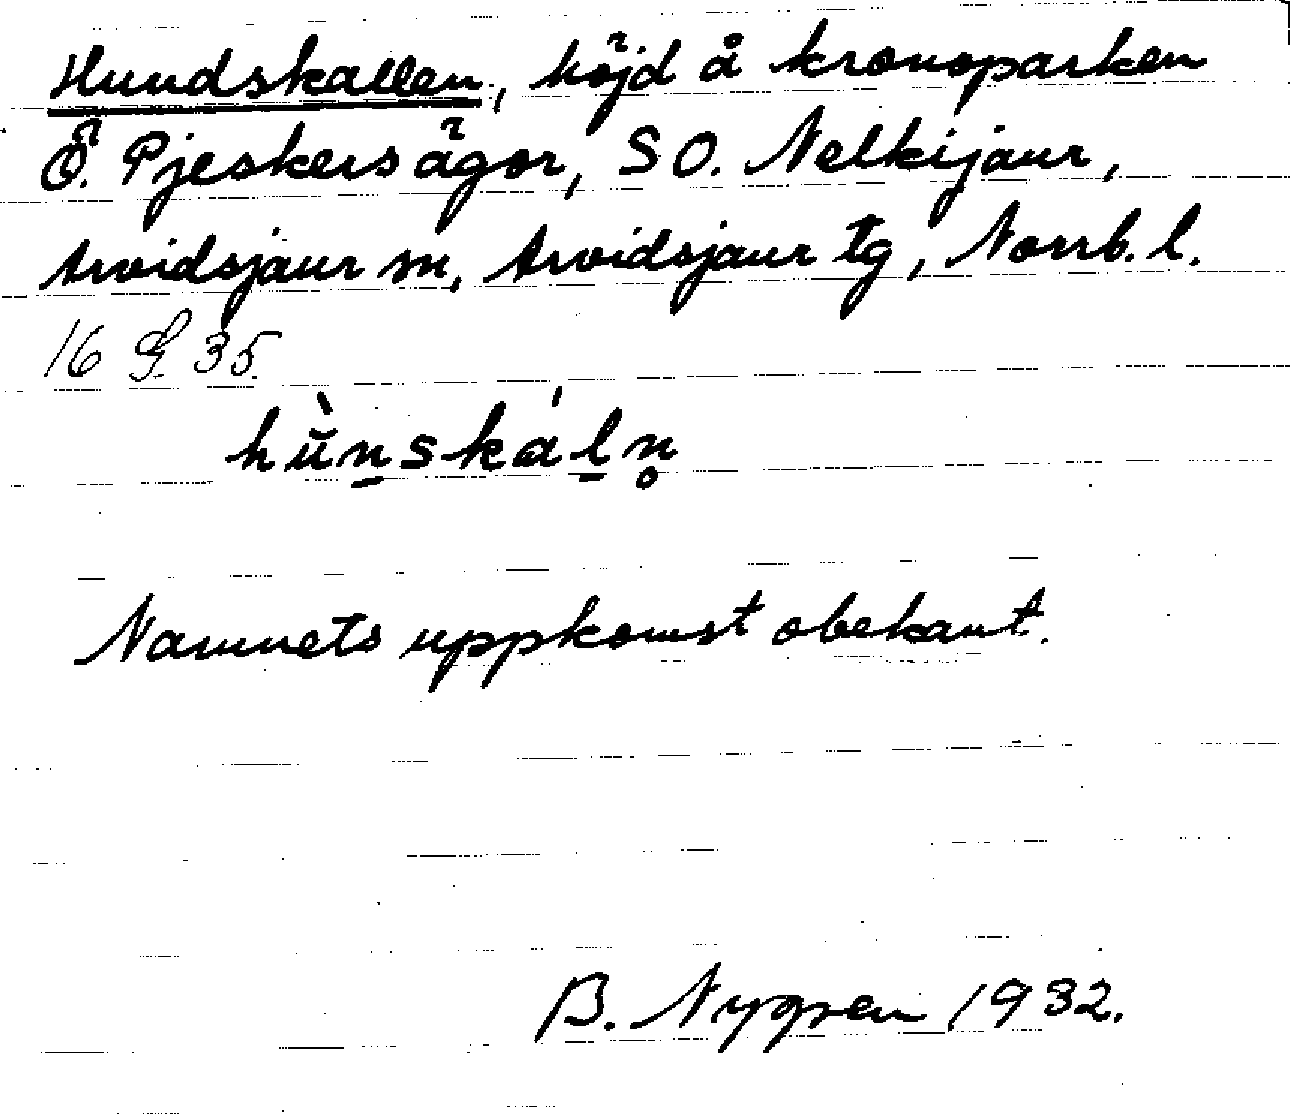 Hundskallen, höjd å kronoparken
Ö. Pjeskers ägor, SO. Nelkijaur,
Arvidsjaur sn, Arvidsjaur tg, Norrb. l.
16 G. 35.
hùnskáln̥
Namnets uppkomst obekant.
B. Nygren 1932.